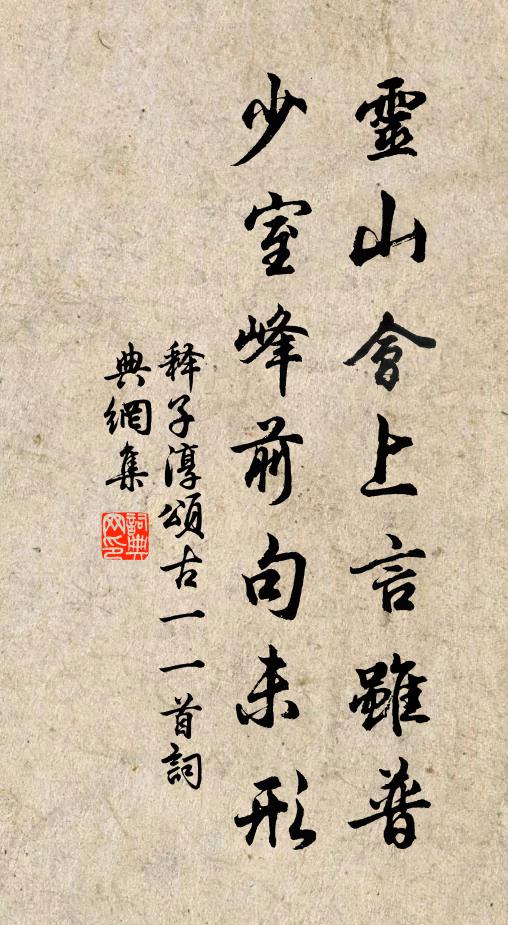 靈山會上言雖普
少室峰前句未形
释子淳頌古一一首詞
典網集
詞典
网印